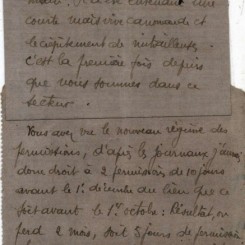 une
courte mais vive canonnade et
le crépitement de mitrailleuses.
C'est la première fois depuis
que nous sommes dans ce
secteur.
Vous avez vu le nouveau régime des
permissions, d'après les journaux j'aurais
donc droit à 2 permissions de 10 jours
avant le 1er décembre au lieu que ce
soit avant le 1er octobre : Résultat, on
perd 2 mois, soit 5 jours de permission